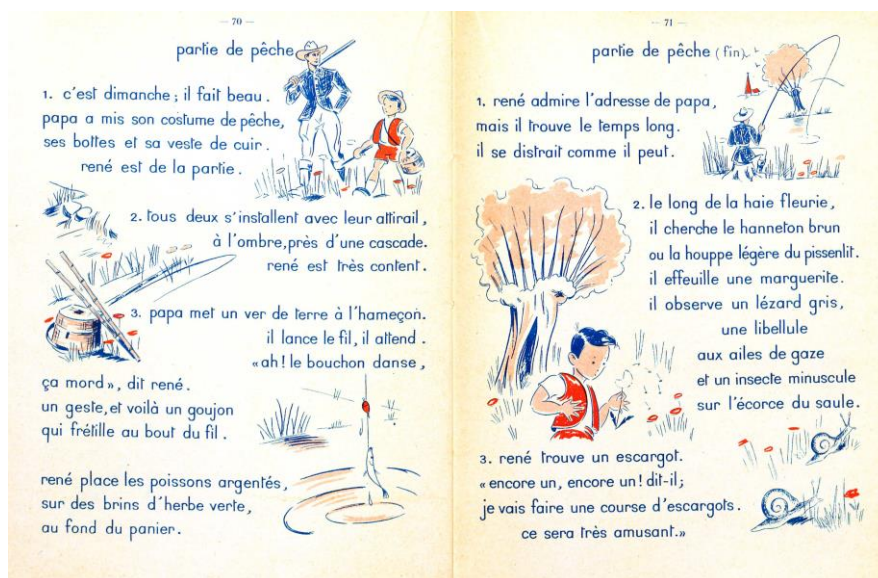 — 70 —
partie de pêche
1. c'est dimanche ; il fait beau.
papa a mis son costume de pêche,
ses bottes et sa veste de cuir.
rené est de la partie.
2. tous deux s'installent avec leur attirail,
à l'ombre, près d'une cascade.
rené est très content.
3. papa met un ver de terre à l'hameçon.
il lance le fil, il attend.
« ah ! le bouchon danse,
ça mord », dit rené.
un geste, et voilà un goujon
qui frétille au bout du fil.
rené place les poissons argentés,
sur des brins d'herbe verte,
au fond du panier.
— 71 —
partie de pêche (fin).
1. rené admire l'adresse de papa,
mais il trouve le temps long.
il se distrait comme il peut.
2. le long de la haie fleurie,
il cherche le hanneton brun
ou la houppe légère du pissenlit.
il effeuille une marguerite.
il observe un lézard gris,
une libellule
aux ailes de gaze
et un insecte minuscule
sur l'écorce du saule.
3. rené trouve un escargot.
« encore un, encore un ! dit-il;
je vais faire une course d'escargots.
ce sera très amusant.»